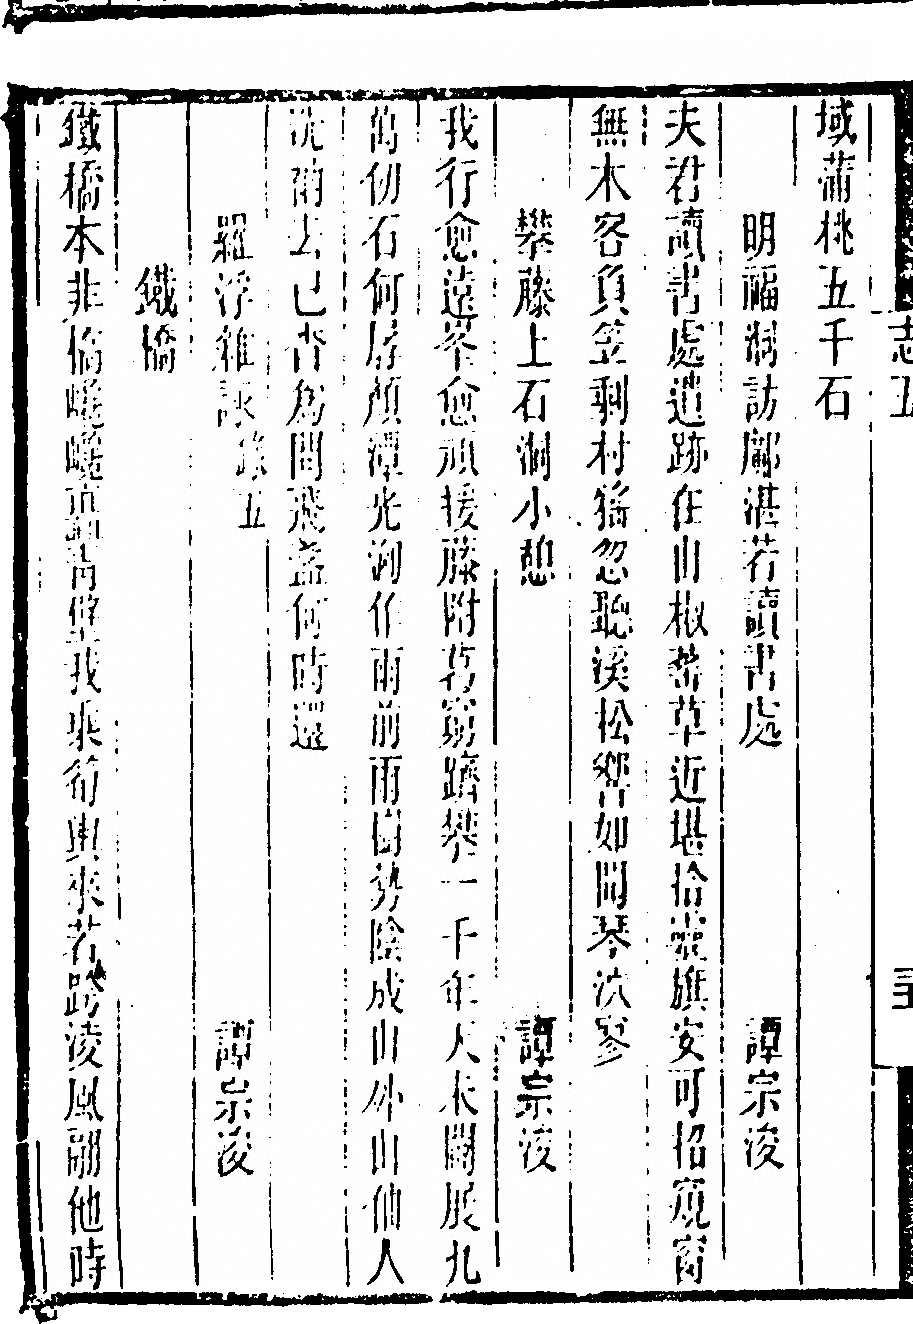 志五
域蒲桃五千石
明福洞訪鄺湛若讀書處 譚宗浚
夫君讀書處遺跡在山椒帶草近堪拾靈旗安可招窺窗
無木客負笠剩村猺忽聽溪松響如聞琴泬寥
攀藤上石洞小憩 譚宗浚
我行愈遠峯愈頑援藤附葛窮躋攀一千年人未開展九
萬仞石何孱顏潭光洞作雨前雨樹勢陰成山外山仙人
洗 去已杳為問飛 何時還
羅浮雜詠錄五 譚宗浚
鐵橋
鐵橋本非橋 青 我乘筍輿來若跨凌風翮他時